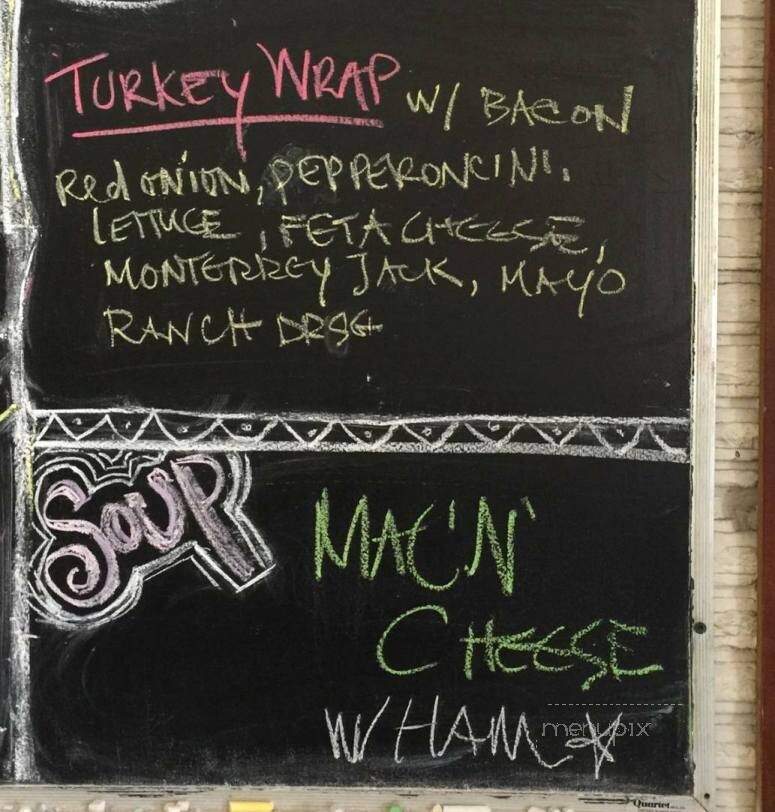 TURKEY WRAP W/ BACON
Red ONION, PEPPERONCINI.
LETTUCE, FETA CHEESE,
MONTERREY JACK, MAYO
RANCH DRSG
SOUP
MAC'N'
CHEESE
W/ HAM
menupix
Quartet